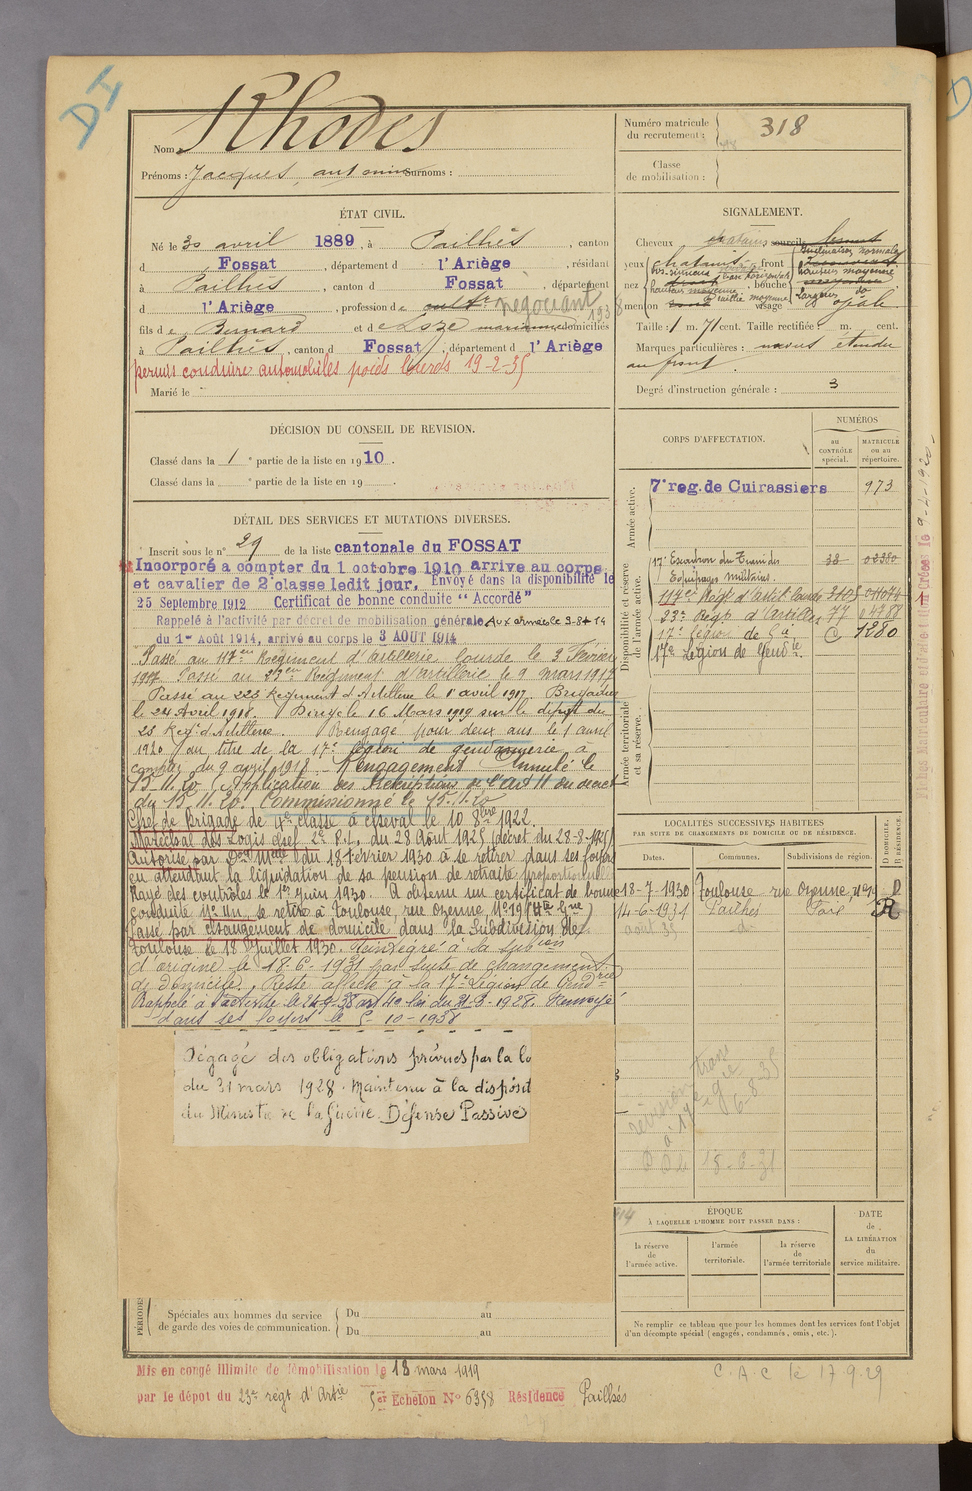 DI
Nom Rhodes
Prénoms : Jacques, antonin Surnoms :
Numéro matricule du recrutement : 318
Classe de mobilisation :
ÉTAT CIVIL.
Né le 30 avril 1889, à Pailhès, canton
d Fossat, département d l'Ariège, résidant
à Pailhès, canton d Fossat, département
d l'Ariège, profession de cultr négociant
1938
fils de Bernard et de Loze marianne domiciliés
à Pailhès, canton d Fossat, département d l'Ariège
permis conduire automobiles poids lourds 19-2-35
Marié le
SIGNALEMENT.
Cheveux chatains sourcils
yeux chatains front
nez bouche
menton visage ovale
Taille : 1 m. 71 cent. Taille rectifiée : m. cent.
Marques particulières : naevus étendu
au front.
Degré d'instruction générale : 3
DÉCISION DU CONSEIL DE REVISION.
Classé dans la 1e partie de la liste en 1910.
Classé dans la e partie de la liste en 19 .
DÉTAIL DES SERVICES ET MUTATIONS DIVERSES.
Inscrit sous le n° 29 de la liste cantonale du FOSSAT
Incorporé a compter du 1 octobre 1910 arrive au corps
et cavalier de 2e classe ledit jour. Envoyé dans la disponibilité le
25 Septembre 1912 Certificat de bonne conduite "Accordé"
Rappelé à l'activité par décret de mobilisation générale Aux armées le 3-8-14
du 1er Août 1914, arrivé au corps le 3 AOUT 1914
Passé au 117eme Régiment d'artillerie lourde le 3 Février
1917 Passé au 23eme Régiment d'artillerie le 9 mars 1917
Passé au 223 Régiment d'Artillerie le 1er avril 1917. Brigadier
le 24 Avril 1918. Dirigé le 16 Mars 1919 sur le dépôt du
23 Regt d'Artillerie. Rengagé pour deux ans le 1 avril
1920 au titre de la 17e légion de gendarmerie à
compter du 9 avril 1918. Rengagement Annulé le
15.11.20 (Application des prescriptions de l'art 11 du decret
du 15.11.20. Commissionné le 15.11.20
Chef de brigade de 4e classe à cheval le 10 8bre 1922.
Maréchal des Logis chef 2e P.L. du 28 Août 1925 (décret du 28-8-1925)
Autorisé par Don Melle du 18 Février 1930 à se retirer dans ses foyers
en attendant la liquidation de sa pension de retraite proportionnelle
Rayé des contrôles le 1er Juin 1930. A obtenu un certificat de bonne
conduite No Un, se retire à Toulouse, rue Ozenne, No 19 (Hte Gne)
Passé par changement de domicile dans la Subdivision de
Toulouse le 18 Juillet 1930. Réintégré à la subion
d'origine le 18-6-1931 par suite de changement
de domicile. Reste affecté à la 17e Légion de Gendrie
Rappelé à l'activité le 24-9-38 art 40 loi du 31-3-1928. Renvoyé
dans ses foyers le 5-10-1938
Dégagé des obligations prévues par la lo
du 31 mars 1928. Maintenu à la disposit
du Ministre de la Guerre. Défense Passive
CORPS D'AFFECTATION.
NUMÉROS
au CONTRÔLE spécial.
MATRICULE ou au répertoire.
Armée active.
7e reg. de Cuirassiers 973
Disponibilité et réserve de l'armée active.
17e Escadron du Train des 38 02380
Equipages militaires.
117e Régt d'artil. lourde
23e Régt d'Artillerie 77 04788
17e Légion de Gie C 1280
17e Légion de Gendie.
Armée territoriale et sa réserve.
LOCALITÉS SUCCESSIVES HABITÉES
PAR SUITE DE CHANGEMENTS DE DOMICILE OU DE RÉSIDENCE.
Dates. Communes. Subdivisions de région. D DOMICILE. R RÉSIDENCE.
18-7-1930 Toulouse rue Ozenne, No 19 D
14-6-1931 Pailhès Foix R
août 35 -d-
révision trans
à 17e Lég ie
6-8-35
18-6-31
ÉPOQUE
À LAQUELLE L'HOMME DOIT PASSER DANS :
la réserve de l'armée active.
l'armée territoriale.
la réserve de l'armée territoriale
DATE de LA LIBÉRATION du service militaire.
PÉRIODES
Spéciales aux hommes du service de garde des voies de communication.
Du au
Du au
Ne remplir ce tableau que pour les hommes dont les services font l'objet
d'un décompte spécial (engagés, condamnés, omis, etc.).
Mis en congé illimité de démobilisation le 18 mars 1919
par le dépôt du 23e regt d'Artie 5er Echelon N° 6358 Résidence Pailhès
C.A.C le 17.9.29